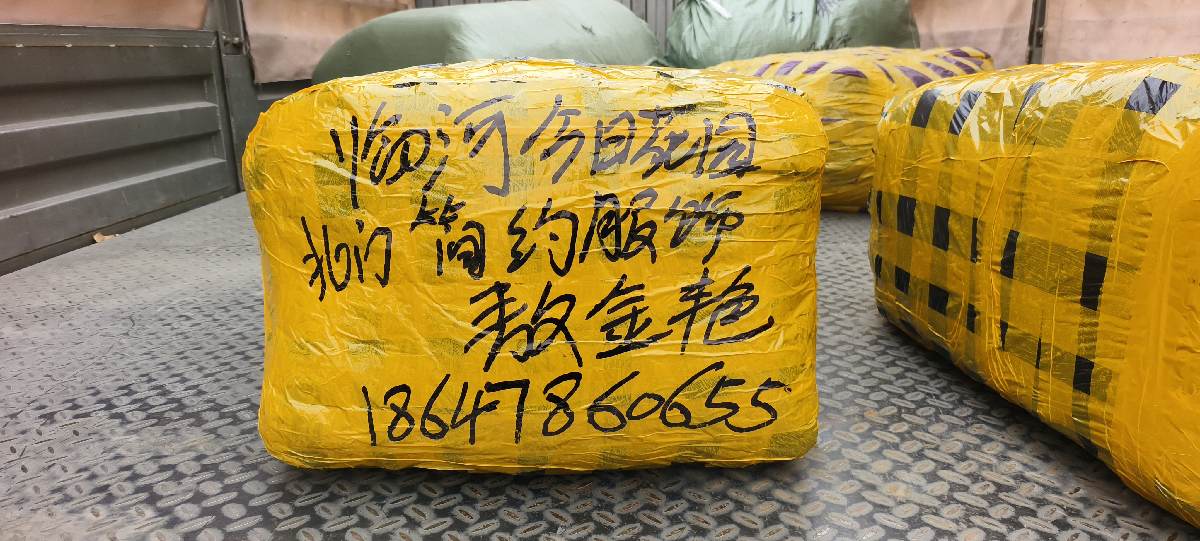 临河今日花园
北门 简约服饰
敖金艳
18647860655